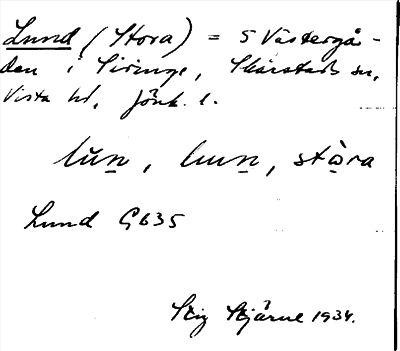 Lund (Stora) = 5 Västergår-
den i Siringe, Skärstads sn,
Vista hd, Jönk. l.
lŭn̲, lɯn̲, stọ̀ra
Lund G635
Stig Stjärne 1934.